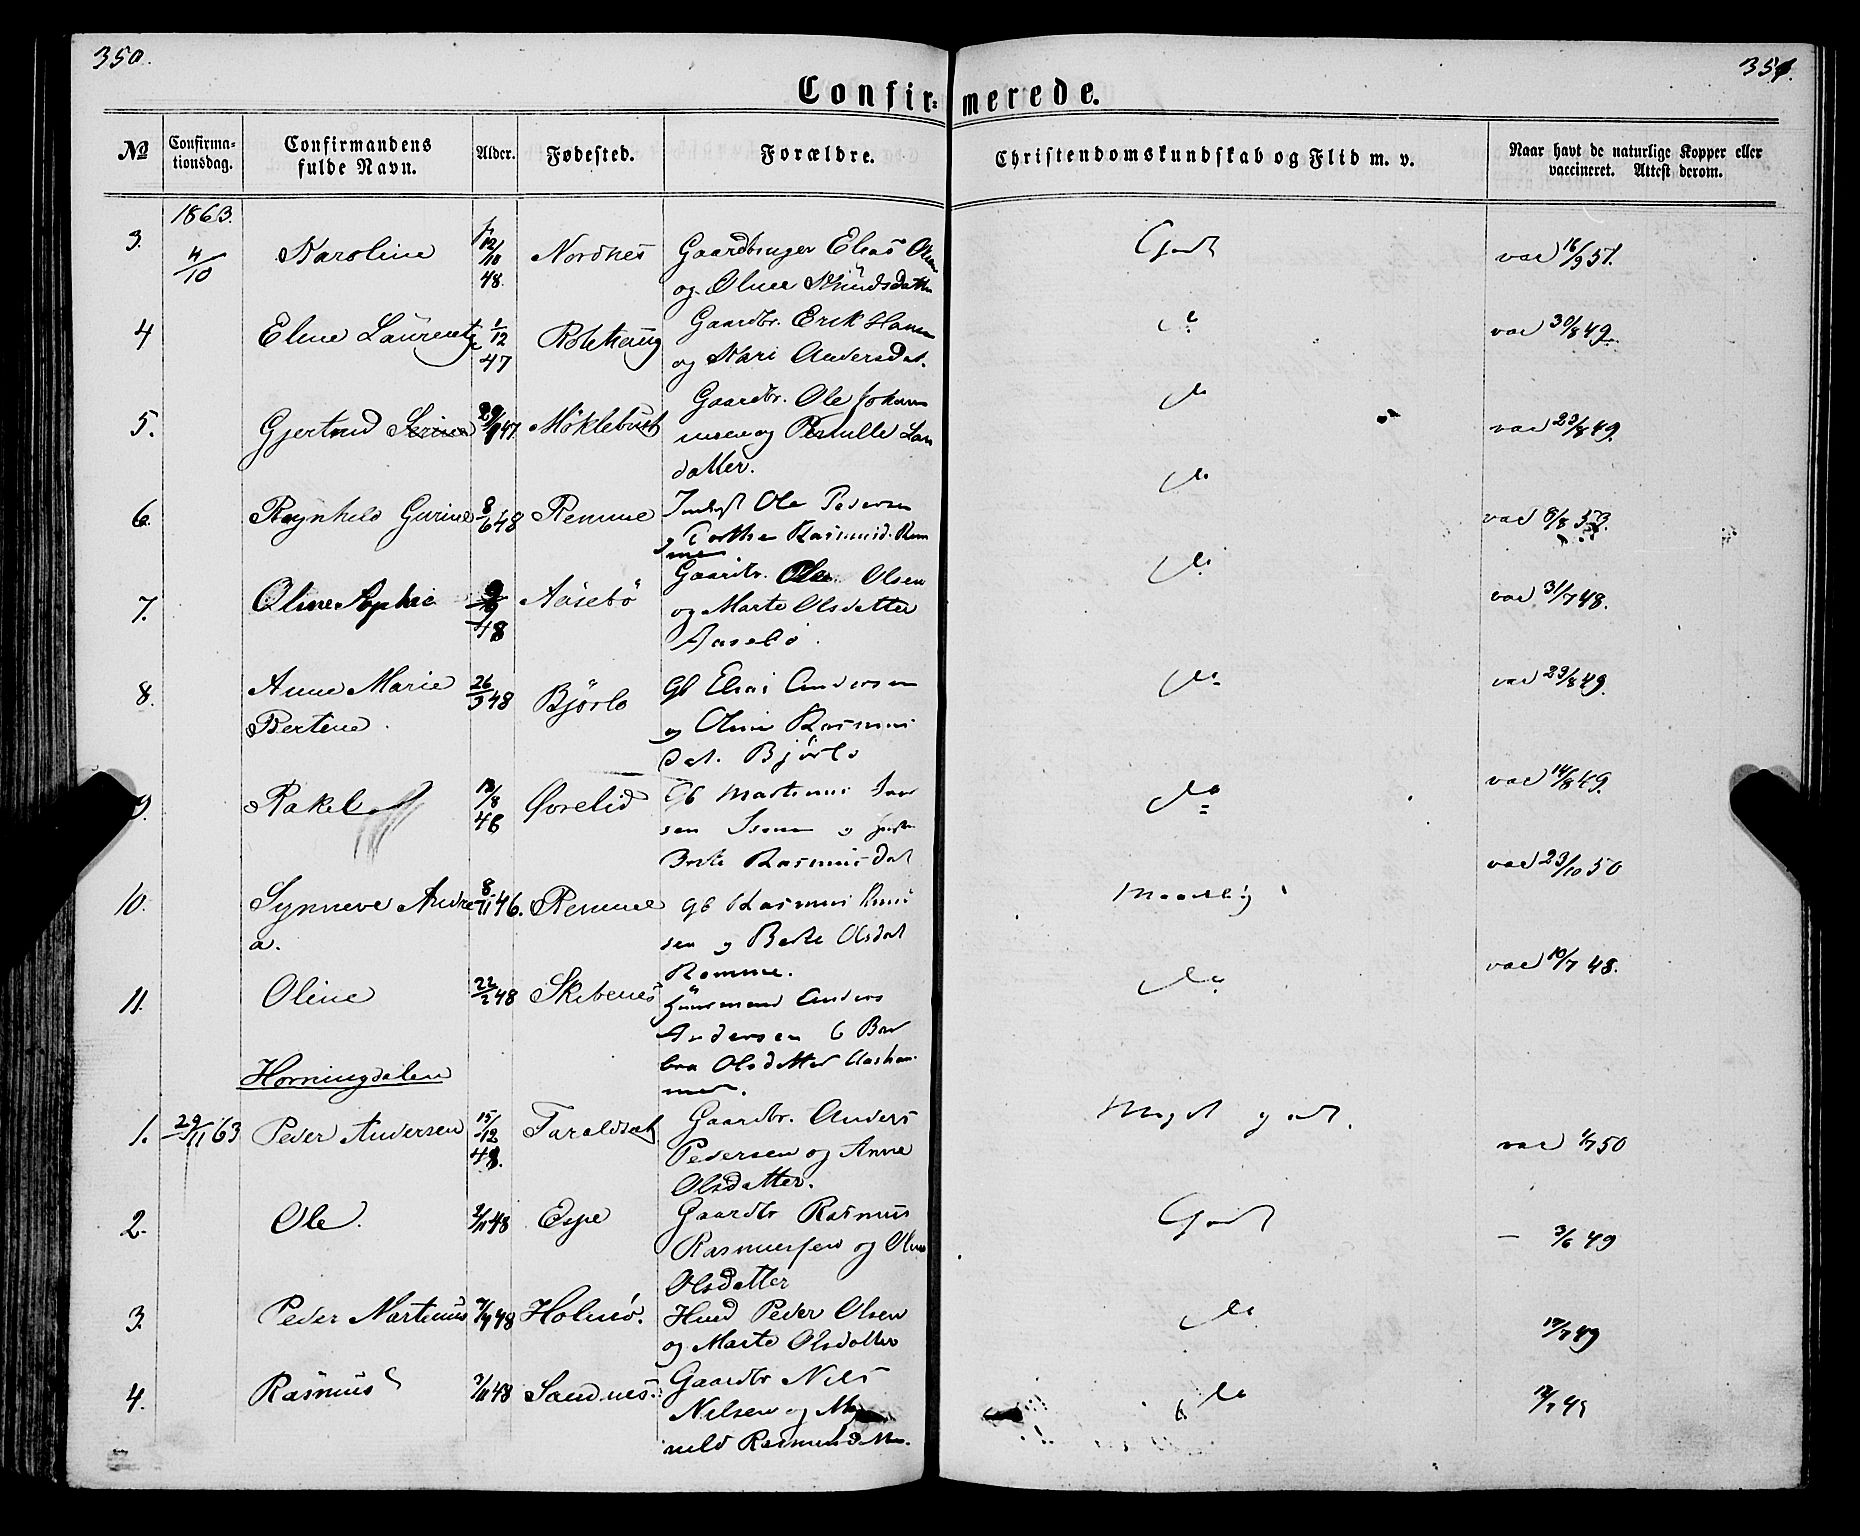 350.
351.
Confir= merede.
No
Confirma-
tionsdag.
Confirmandens
fulde Navn.
Alder.
Fødested.
Forældre.
Christendomskundskab og Flid m. v.
Naar havt de naturlige Kopper eller
vaccineret. Attest derom.
1863.
3. 4/10 Karoline 12/10 48. Nordnes Gaardbruger Elias Olsen Godt vac 16/9 51.
og Oline Knudsdatter
4 Eline Laurentze 1/12 47 Gaardbr. Erik Hansen do vac 30/8 49.
og Kari Andersdat.
5. Gjertrud Serine 29/9 47 Møklebust Gaardbr. Ole Johan do vac 23/8 49.
nesen og Pernille Lars
datter.
6. Ragnhild Gurine 8/6 48 Remme Ole Pedersen do vac 8/8 53.
Dorthe Rasmusd. Rem
me
7. Oline Sophie 9/9 48 Aasebö Gaardbr. Ole Olsen do vac 31/7 48.
og Marte Olsdatter
Aasebö.
8. Anne Marie 26/3 48 Björlo Gb Elias Andersen do vac 23/8 49.
Bertine. og Oline Rasmus
dat. Björlo
9. Rakel 18/8 46 Øvrelid Gb Martinus Iver do vac 14/8 49.
sen
Brite Rasmusdat
10. Synneve Andre 8/11 46. Remme Gb Rasmus maadelig vac 23/10 50
a. sen og Berte Olsdat
Remme.
11. Oline 22/2 48 Skibenes Huusmand Anders do vac 10/7 48.
Andersen & Bar
bra Olsdatter Aasham
mer.
Horningdalen
1. 29/11 63 Peder Andersen 15/12 48. Taraldset Gaardbr. Anders Meget godt. vac 1/7 50
Pedersen og Anne
Olsdatter.
2. Ole. 2/11 48 Espe Gaardbr Rasmus Godt — 3/6 49
Rasmussen og Oline
Olsdatter
3. Peder Martinus 7/9 48 Holmö. Husd Peder Olsen do 17/7 49
og Marte Olsdatter
4. Rasmus 7/11 48 Sandnes. Gaardbr Nils do 12/7 49
Nilsen og
nild Rasmusdatter.